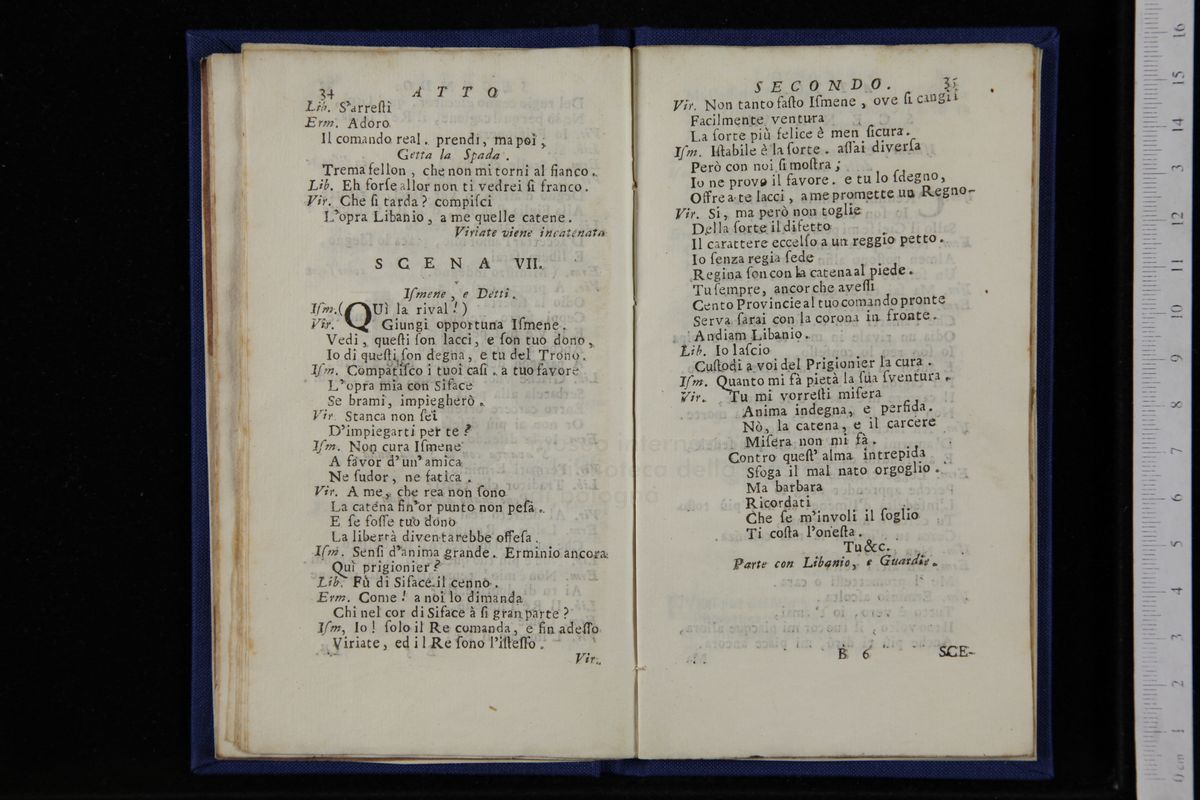 34 ATTO
Lib. S'arreſti
Erm. Adoro
Il comando real. prendi, ma poi,
Getta la Spada.
Trema fellon, che non mi torni al fianco.
Lib. Eh forſe allor non ti vedrei ſi franco.
Vir. Che ſi tarda? compiſci
L'opra Libanio, a me quelle catene.
Viriate viene incatenata
SCENA VII.
Iſmene, e Detti.
Iſm. (QUì la rival!)
Vir. Giungi opportuna Iſmene.
Vedi, queſti ſon lacci, e ſon tuo dono,
Io di queſti ſon degna, e tu del Trono.
Iſm. Compatiſco i tuoi caſi. a tuo favore
L'opra mia con Siface
Se brami, impiegherò.
Vir. Stanca non ſei
D'impiegarti per te?
Iſm. Non cura Iſmene
A favor d'un' amica
Ne ſudor, ne fatica.
Vir. A me, che rea non ſono
La catena fin'or punto non peſa.
E ſe foſſe tuo dono
La libertà diventarebbe offeſa.
Iſm. Senſi d'anima grande. Erminio ancora
Quì prigionier?
Lib. Fù di Siface il cenno.
Erm. Come! a noi lo dimanda
Chi nel cor di Siface à ſi gran parte?
Iſm, Io! ſolo il Re comanda, e ſin adeſſo
Viriate, ed il Re ſono l'iſteſſo.
Vir.
SECONDO. 35
Vir. Non tanto faſto Iſmene, ove ſi cangii
Facilmente ventura
La ſorte più felice è men ſicura.
Iſm. Iſtabile è la ſorte. aſſai diverſa
Però con noi ſi moſtra;
Io ne provo il favore. e tu lo ſdegno,
Offre a te lacci, a me promette un Regno
Vir. Si, ma però non toglie
Della ſorte il difetto
Il carattere eccelſo a un reggio petto.
Io ſenza regia ſede
Regina ſon con la catena al piede.
Tu ſempre, ancor che aveſſi
Cento Provincie al tuo comando pronte
Serva ſarai con la corona in fronte.
Andiam Libanio.
Lib. Io laſcio
Cuſtodi a voi del Prigionier la cura.
Iſm. Quanto mi fà pietà la ſua ſventura.
Vir. Tu mi vorreſti miſera
Anima indegna, e perfida.
Nò, la catena, e il carcere
Miſera non mi fà.
Contro queſt' alma intrepida
Sfoga il mal nato orgoglio.
Ma barbara
Ricordati
Che ſe m'involi il ſoglio
Ti coſta l'oneſta.
Tu &c.
Parte con Libanio, e Guardie.
B 6 SCE-